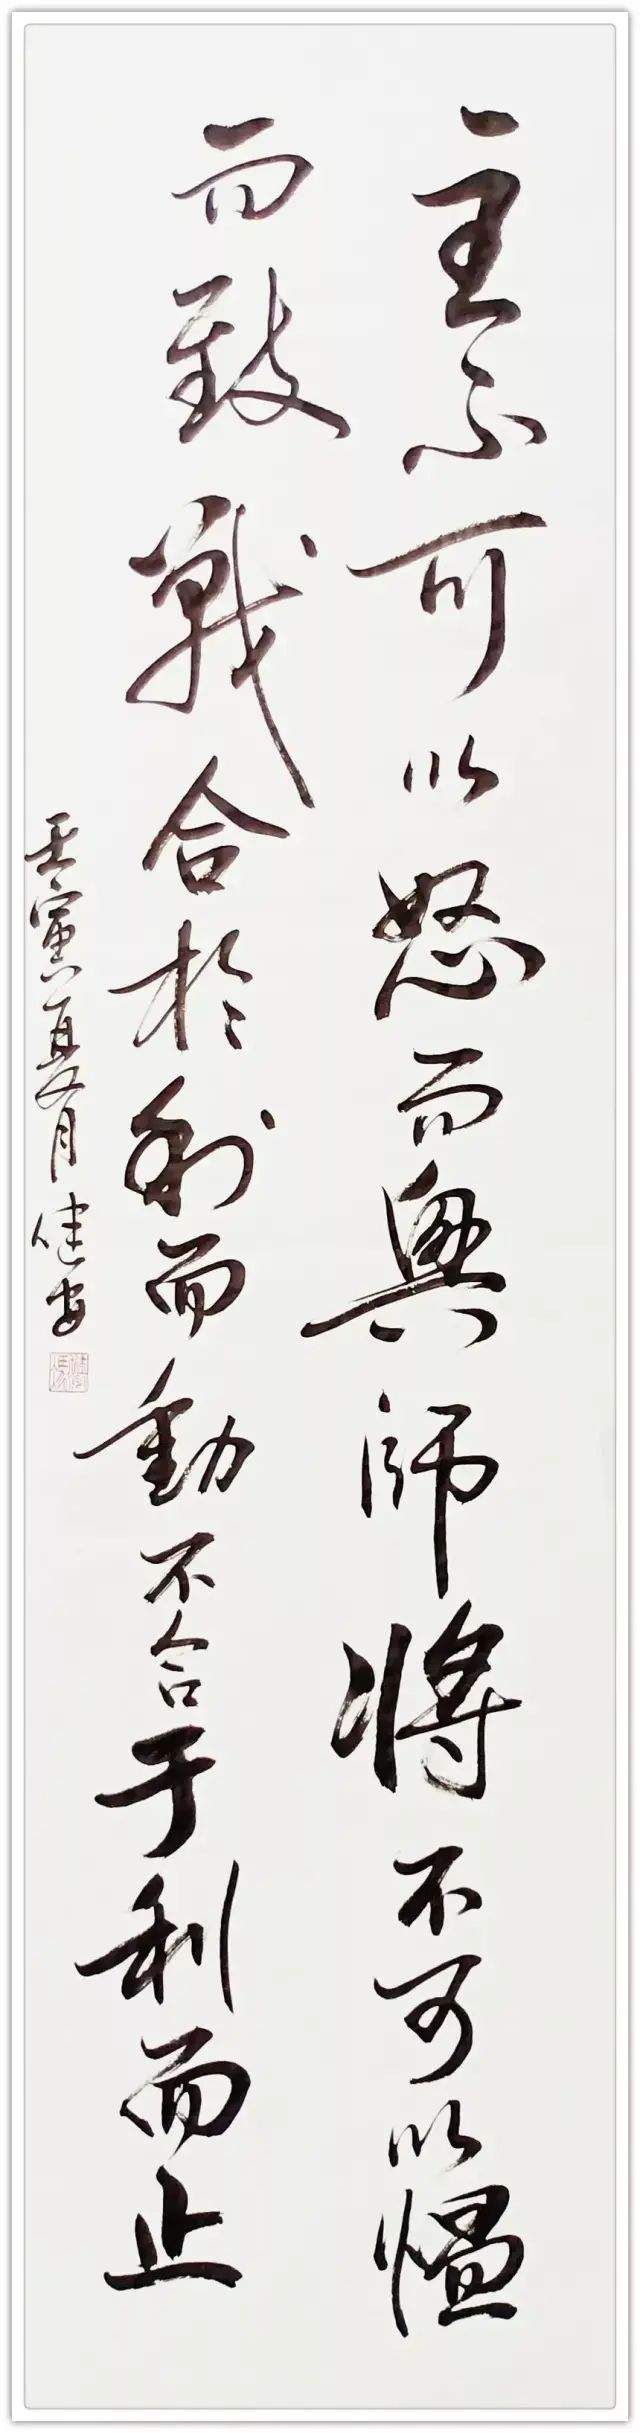 主不可以怒而興師將不可以慍
而致戰合於利而動不合于利而止
壬寅夏月健安